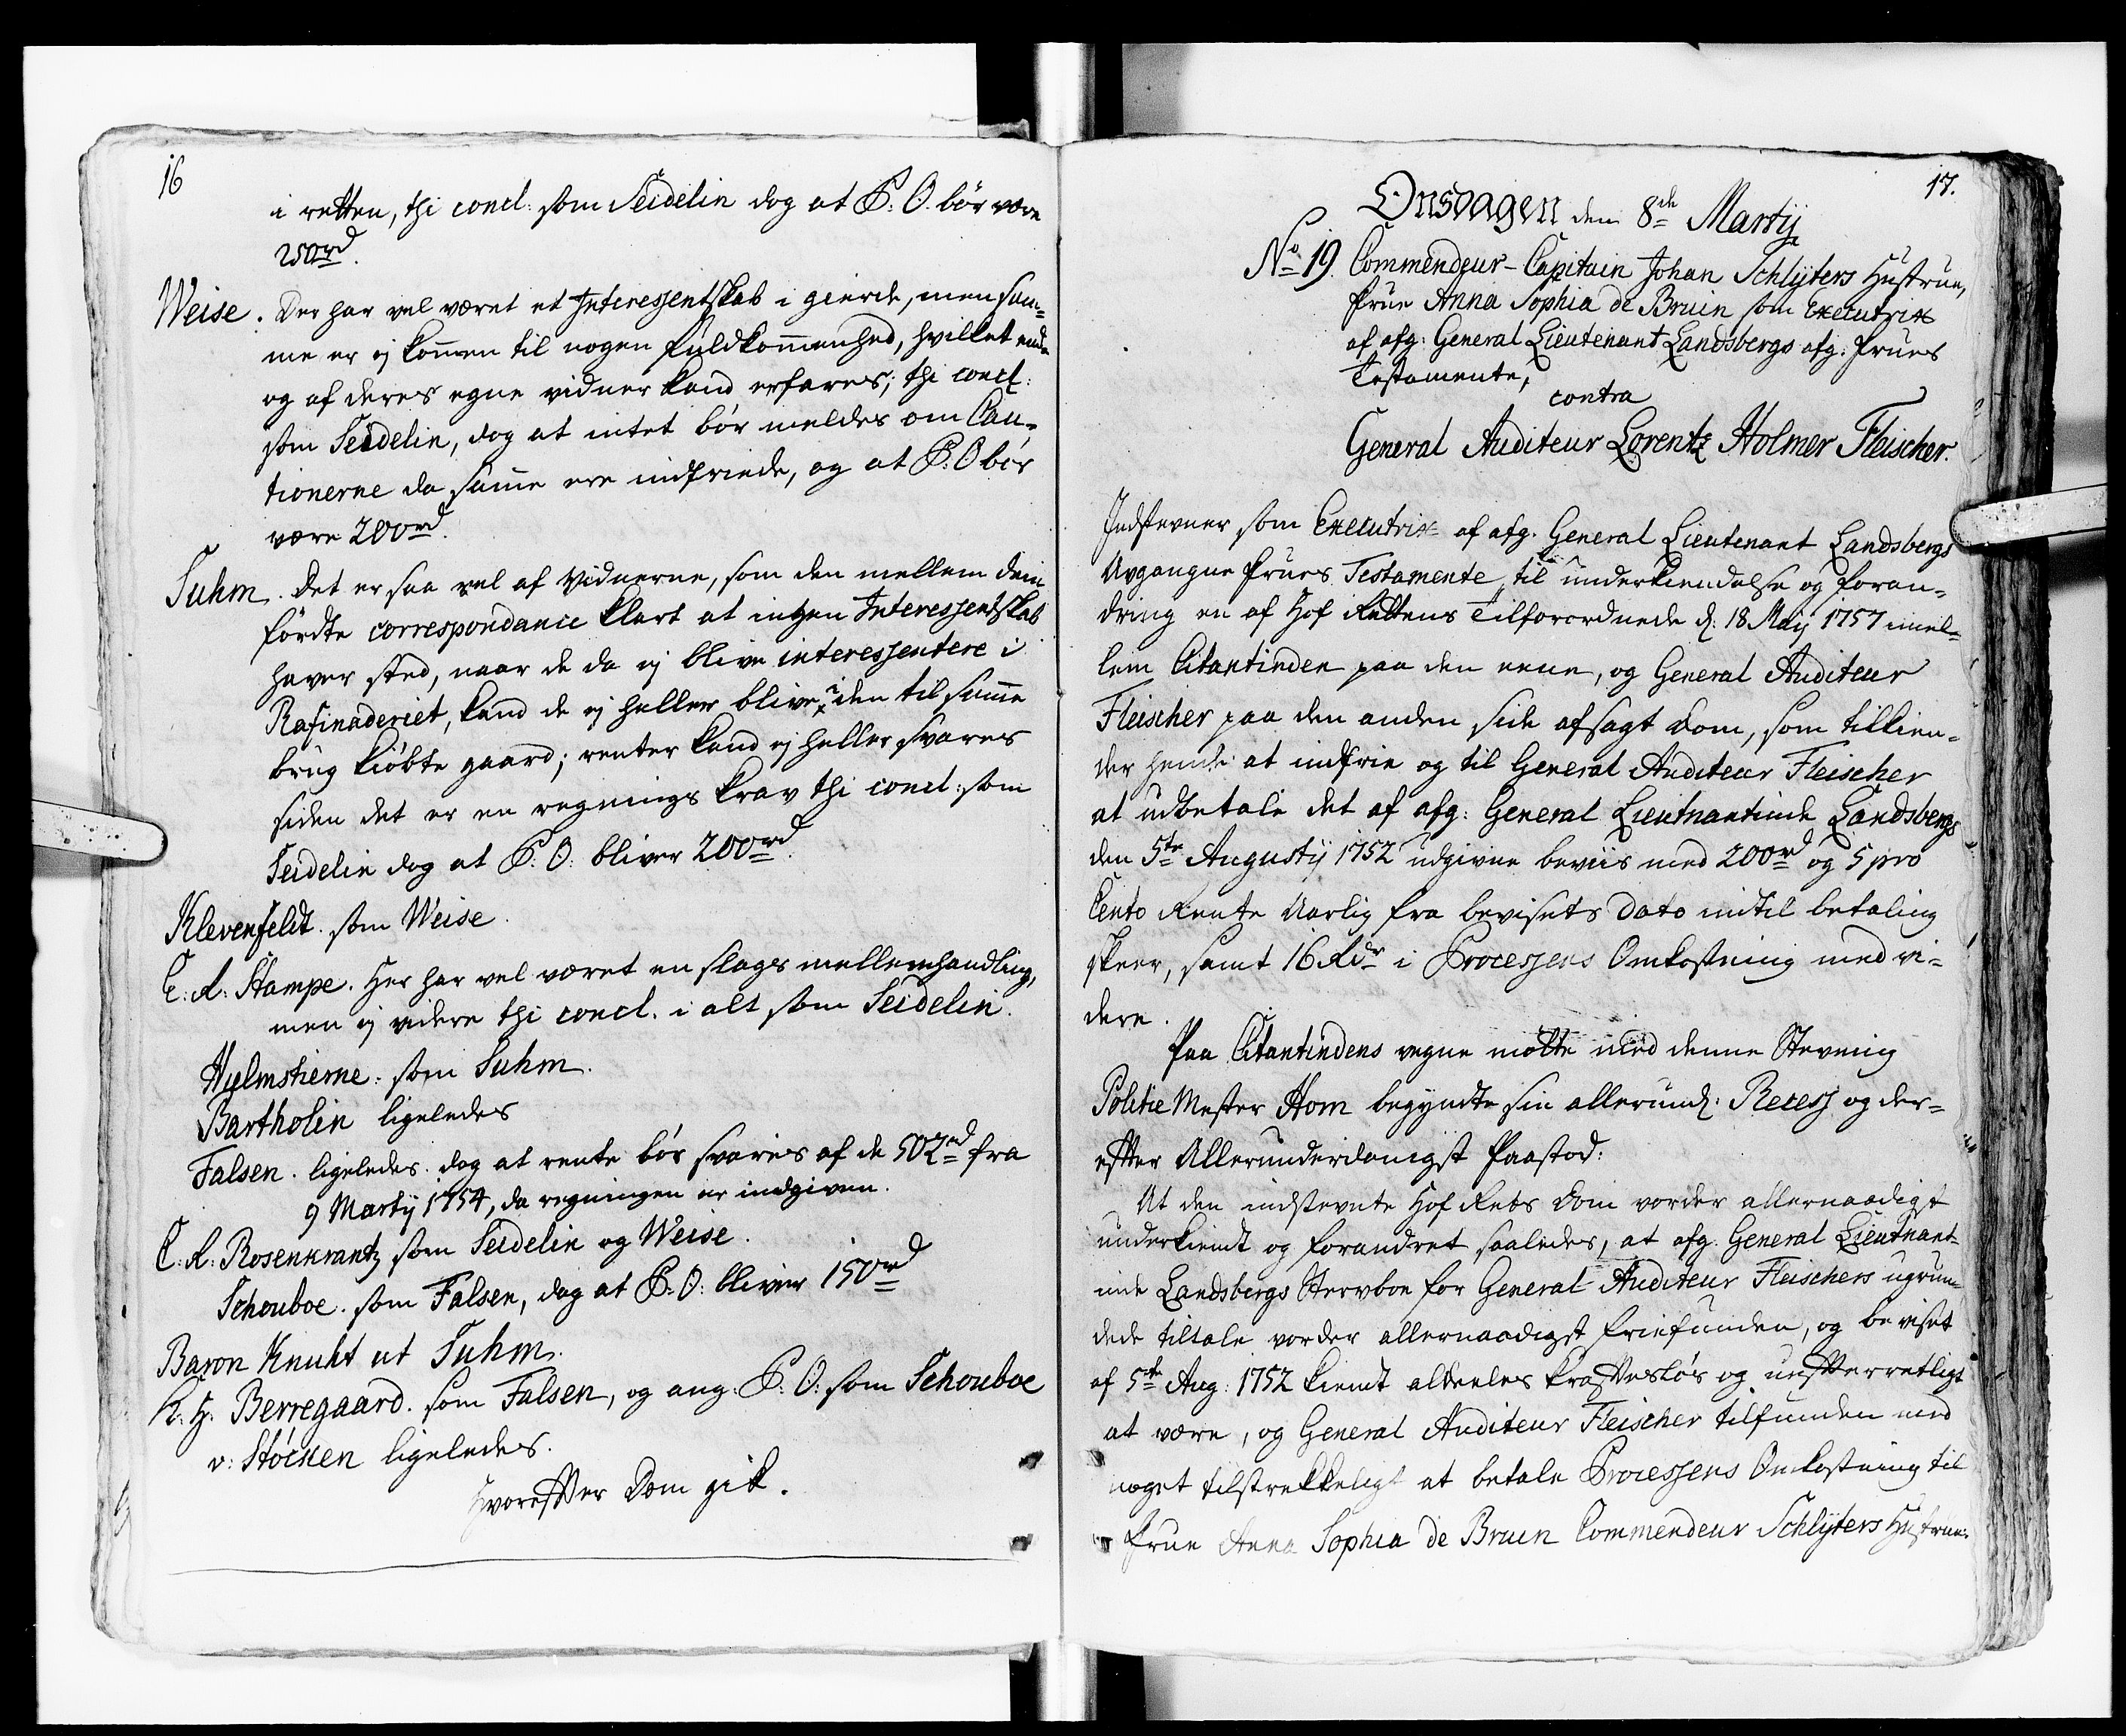 16
i retten, thi concl: som Seidelin dog at P: O. bör være
250rd.
Weise. Der har vel været et Interessentskab i gierde, men sam-
me er ej kommen til nogen fuldkommenhed, hvilket end
og af deres egne vidner kand erfares; thi concl:
som Seidelin, dog at intet bör meldes om Cau-
tionerne da samme ere indfriede, og at P: O bör
være 200rd.
Suhm. Det er saa vel af Vidnerne, som den mellem dem
fördte correspondance klart at intzen Interessentskab
haver sted, naar de da ej blive interessentere i
Rafinaderiet, kand de ej heller blive i den til samme
brug kiöbte gaard; renter kand ej heller svares
siden det er en regnings krav thi concl: som
Seidelin dog at P: O: bliver 200rd.
Klevenfeldt. som Weise.
E: R: Stampe. Her har vel været en slags mellemhandling,
men ej videre thi concl. i alt som Seidelin.
Hyelmstierne: som Suhm.
Bartholin ligeledes
Falsen. ligeledes. dog at rente bör svares af de 502rd fra
9 Martij 1754, da regningen er indgiven.
E: R: Rosenkrantz som Seidelin og Weise.
Schouboe. som Falsen, dog at P: O: bliver 150rd
Baron Knuht ut Suhm.
K: H. Berregaard. som Falsen, og ang: P: O: som Schouboe
v: Stöcken ligeledes.
Hvorefter Dom gik.
17.
Onsdagen den 8de Martij
No 19. Commendeur-Capitain Johan Schlÿters Hustrue,
frue Anna Sophia de Bruin som Executrix
af afg: General Lieutenant Landsbergs afg: frues
Testamente,
contra
General Auditeur Lorentz Holmer Fleischer.
Indstevner som Executrix af afg. General Lieutenant Landsbergs
Avgangne frues Testamente, til underkiendelse og foran-
dring en af Hof Rettens Tilforordnede d: 18 Maij 1757 imel-
lem Citantinden paa den eene, og General Auditeur
Fleischer paa den anden side afsagt Dom, som tilkien-
der hende at indfrie og til General Auditeur Fleischer
at udbetale det af afg: General Lieutnantinde Landsbergs
den 5te Augustij 1752 udgivne beviis med 200rd og 5 pro
Cento Rente Aarlig fra bevisets Dato indtil betaling
skeer, samt 16 Rdr i Processens Omkostning med vi-
dere.
Paa Citantindens vegne mötte med denne Stevning
Politie Mester Horn begyndte sin allerund: Recess og der-
efter Allerunderdanigst Paastod:
At den indstevnte Hof Rets Dom vorder allernaadigst
underkiendt og forandret saaledes, at afg: General Lieutnant-
inde Landsbergs Stervboe for General Auditeur Fleischers ugrun-
dede tiltale vorder allernaadigst friefunden, og beviset
af 5te Aug: 1752 kiendt aldeeles krafteslös og uefterretligt
at være, og General Auditeur Fleischer tilfunden med
noget tilstrekkeligt at betale Processens Omkostning til
frue Anna Sophia de Bruin Commendeur Schlÿters Hustrue.